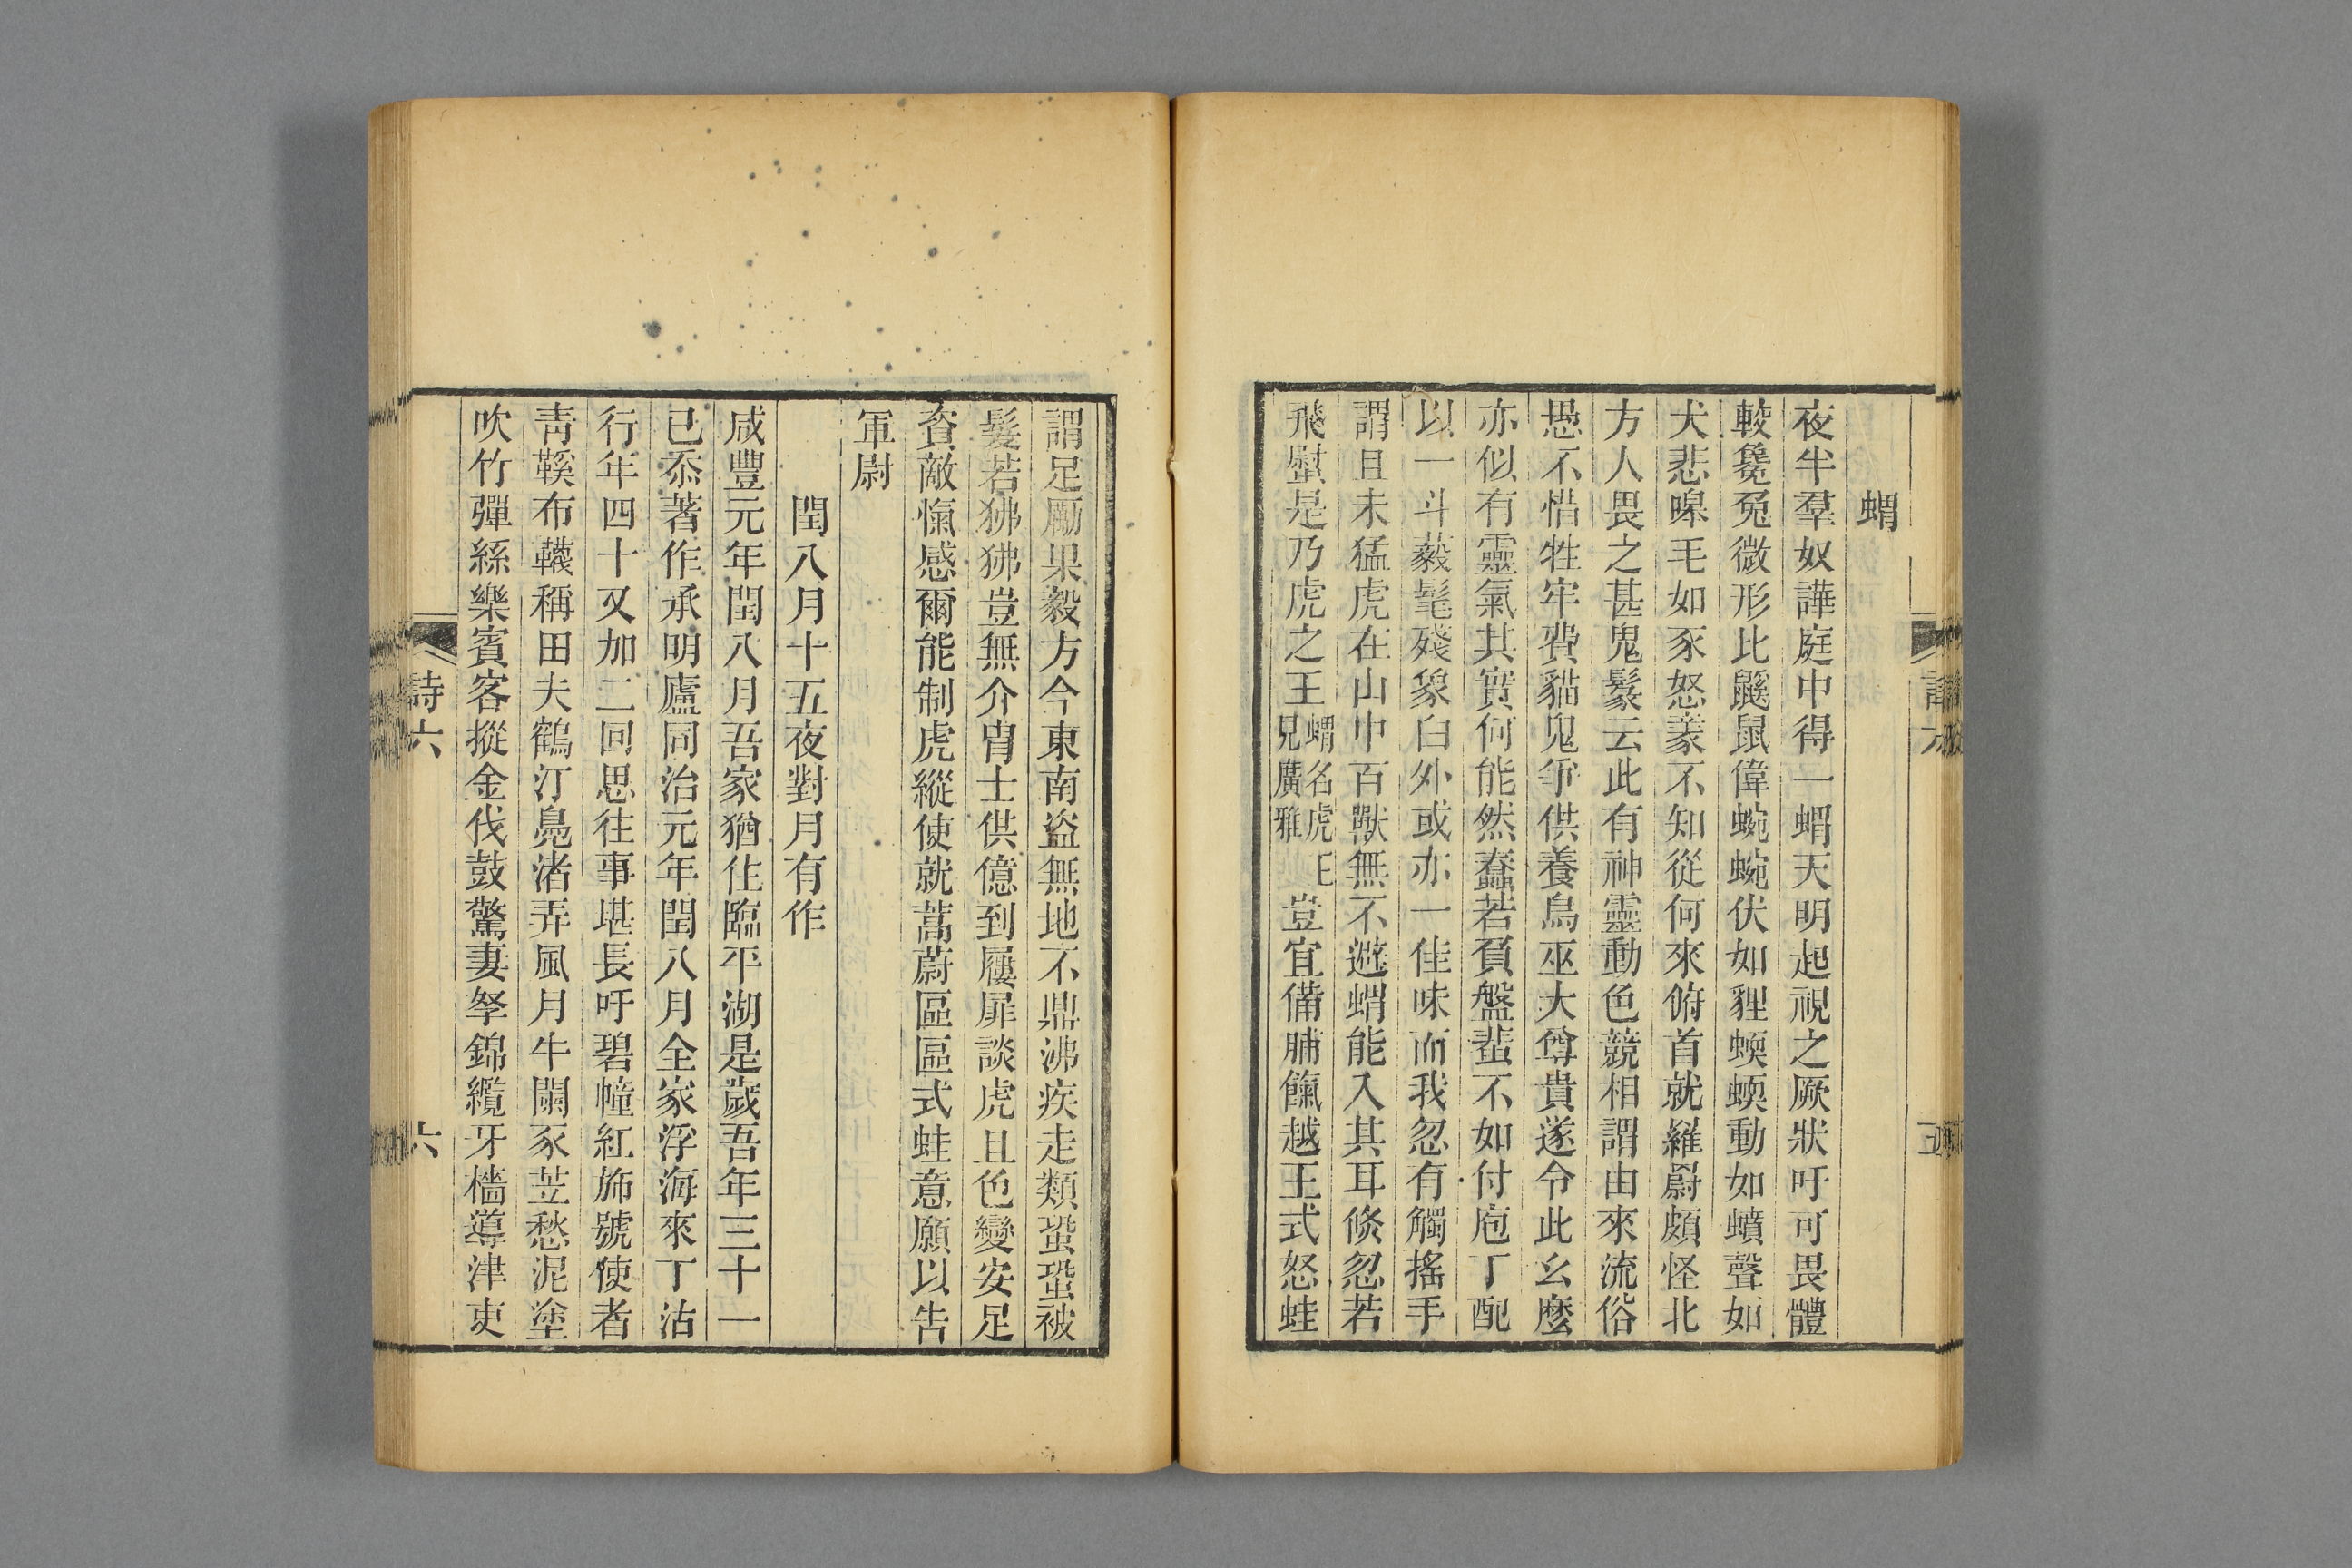 蝟
夜半羣奴譁庭中得一蝟天明起視之厥狀吁可畏體
較毚兔微形比鼷鼠偉蜿蜿伏如貍蝡蝡動如蟦聲如
犬悲嘷毛如豕怒䝘不知從何來俯首就羅罻頗怪北
方人畏之甚鬼鬽云此有神靈動色競相謂由來流俗
愚不惜牲牢費貓鬼爭供養烏巫大尊貴遂令此幺麼
亦似有靈氣其實何能然蠢若負盤蜚不如付庖丁配
以一斗藙髦殘象白外或亦一佳味而我忽有觸搖手
謂且未猛虎在山中百獸無不避蝟能入其耳倏忽若
飛㷉是乃虎之王蝟名虎王見廣雅豈宜備脯餼越王式怒蛙
詩六
五
謂足勵果毅方今東南盜無地不鼎沸疾走類蛩蛩被
髮若狒狒豈無介胄士供億到屨屝談虎且色變安足
資敵愾感爾能制虎縱使就蒿蔚區區式蛙意願以告
軍尉
閏八月十五夜對月有作
咸豐元年閏八月吾家猶住臨平湖是歲吾年三十一
已忝著作承明廬同治元年閏八月全家浮海來丁沽
行年四十又加二回思往事堪長吁碧幢紅斾號使者
靑鞵布韤稱田夫鶴汀鳧渚弄風月牛闌豕苙愁泥塗
吹竹彈絲樂賓客摐金伐鼓驚妻孥錦纜牙檣導津吏
詩六
六